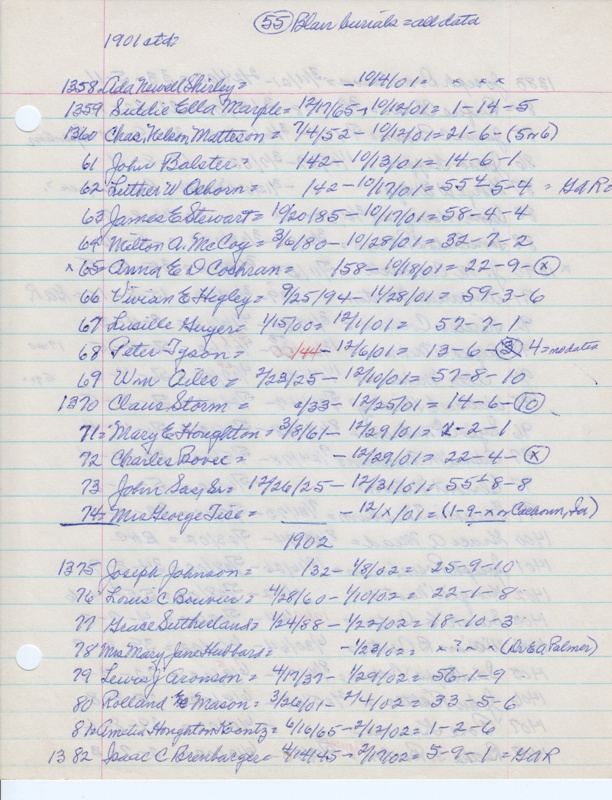 (55) Blair burials = all data
1901 ctd:
1358 Ada Newell Shirley = - 10/4/01 - x - x - x
1359 Siddie Ella Marple = 12/17/65 - 10/12/01 = 1-14-5
1360 Chas. Nelson Matteson = 7/4/52 - 10/12/01 = 21-6-(5 or 6)
61 John Balster = 142 - 10/13/01 = 14-6-1
62 Luther W Osborn = 142 - 10/17/01 = 55½-5-4 = GAR
63 James E Stewart = 10/20/85 - 10/17/01 = 58-4-4
64 Milton A. McCoy = 3/6/80 - 10/28/01 = 32-7-2
x 65 = Anna E D Cochran = 158 - 10/18/01 = 22-9-(x)
66 Vivian E Hegley = 9/25/94 - 11/28/01 = 59-3-6
67 Lucille Guyer = 1/15/00 = 12/1/01 = 57-7-1
68 Peter Tyson = 1/44 - 12/6/01 = 13-6-(3) 4 = no dates
69 Wm Ailes = 2/23/25 - 12/10/01 = 57-8-10
1370 Claus Storm = /33 - 12/25/01 = 14-6-(10)
71 = Mary E Houghton = 3/8/61 - 12/29/01 = 1-2-1
72 Charles Bovee = - 12/29/01 = 22-4-(x)
73 John Gay Sr = 12/26/25 - 12/31/01 = 55½-8-8
74 = Mrs George Tise = - 12/x/01 = (1-9-x or Calhoun, for)
1902
1375 Joseph Johnson = /32 - 1/8/02 = 25-9-10
76 Louis C Bouvier = 4/28/60 - 1/10/02 = 22-1-8
77 Grace Sutherland = 1/24/88 - 1/22/02 = 18-10-3
78 Mrs Mary Jane Hubbard = - 1/23/02 = x-?-x-x (Dr EA Palmer)
79 Lewis J Aronson = 4/17/37 - 1/29/02 = 56-1-9
80 Rolland Mason = 3/26/01 - 2/4/02 = 33-5-6
81 = Amelia Houghton Koontz = 6/16/65 - 2/12/02 = 1-2-6
1382 Isaac C Brenbarger = 4/14/45 - 2/17/02 = 5-9-1 = GAR